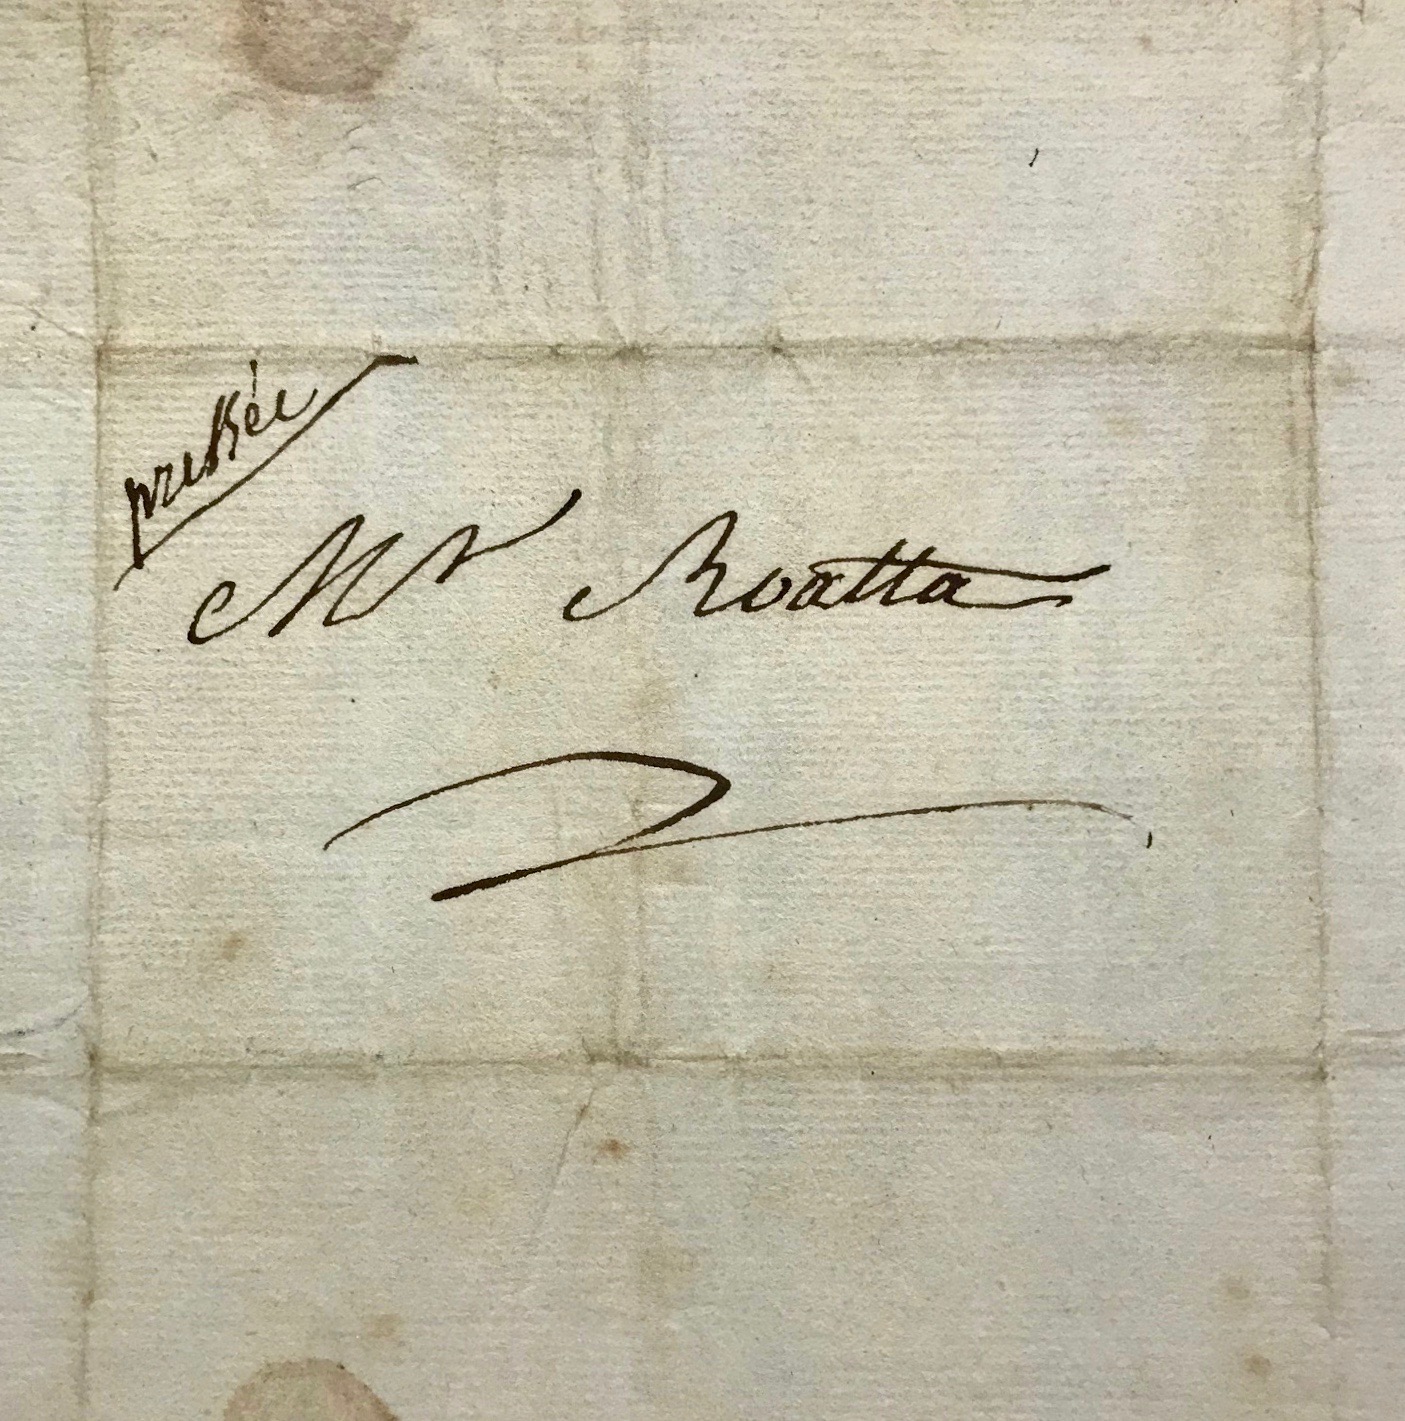 pressée
Mr Roatta